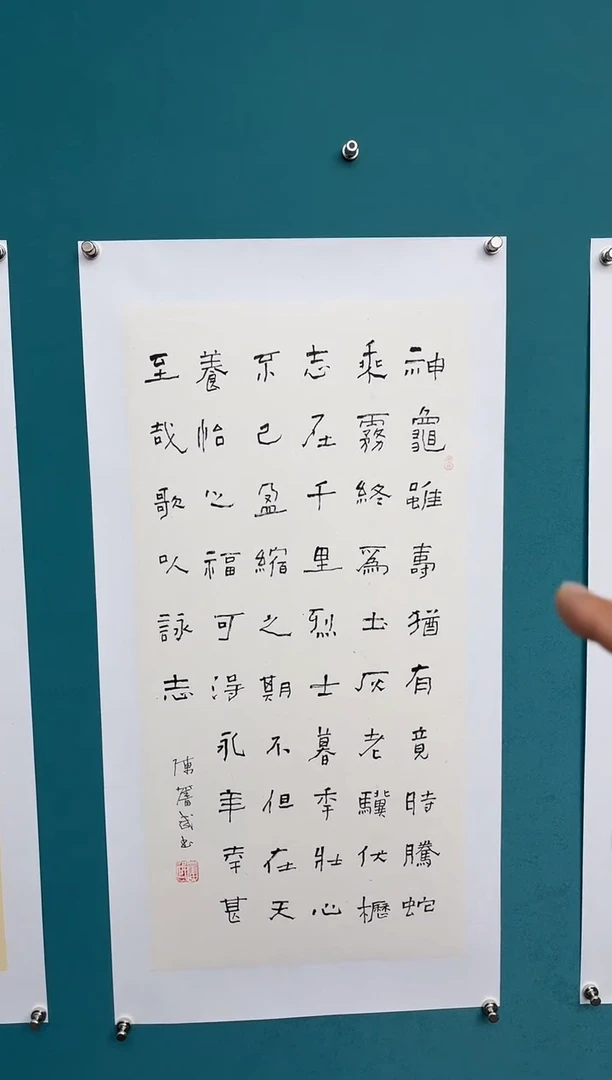 神龜雖壽猶有竟時騰蛇
乘霧終爲土灰老驥伏櫪
志在千里烈士暮年壯心
不已盈縮之期不但在天
養怡之福可得永年幸甚
至哉歌以詠志
陳書